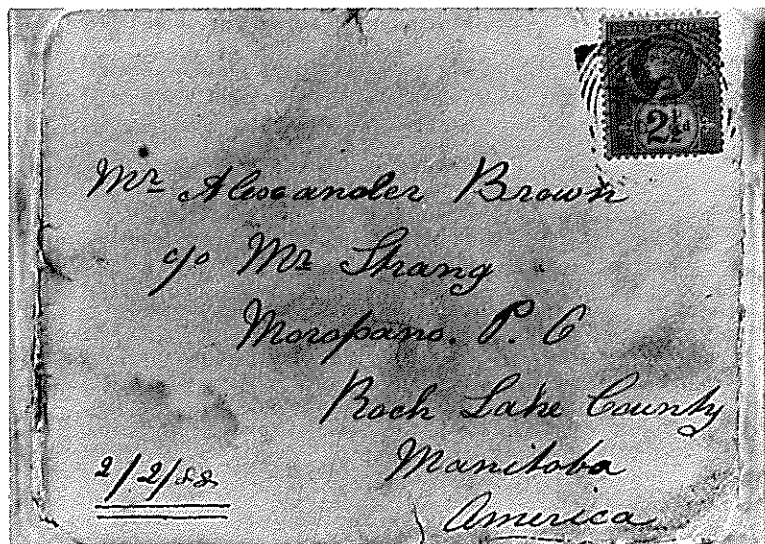 2½d
Mr Alexander Brown
c/o Mr Strang
Morapano. P. O
Rock Lake County
Manitoba
America
2/2/88